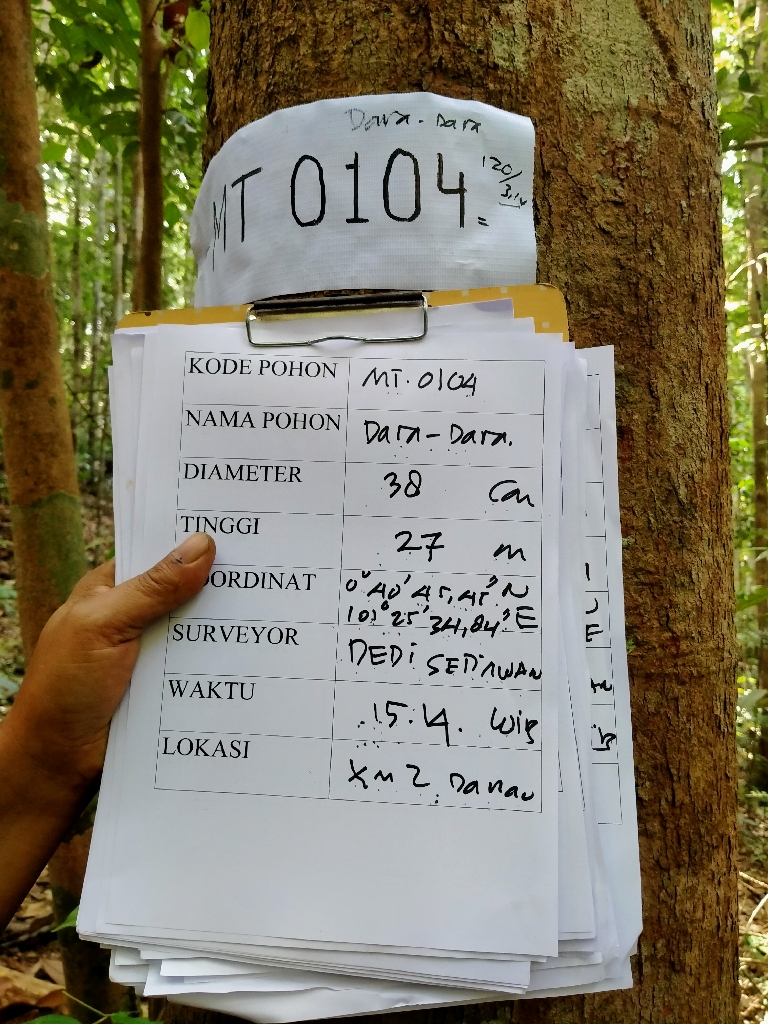 Dara-Dara
MT 0104
120/
3,14
=
KODE POHON MT.0104
NAMA POHON Dara-Dara.
DIAMETER 38 Cm
TINGGI 27 m
OORDINAT 0°40'45,45"N
101°25'34,84"E
SURVEYOR DEDI SETIAWAN
WAKTU .15:14. Wib
LOKASI Km 2 Danau
E